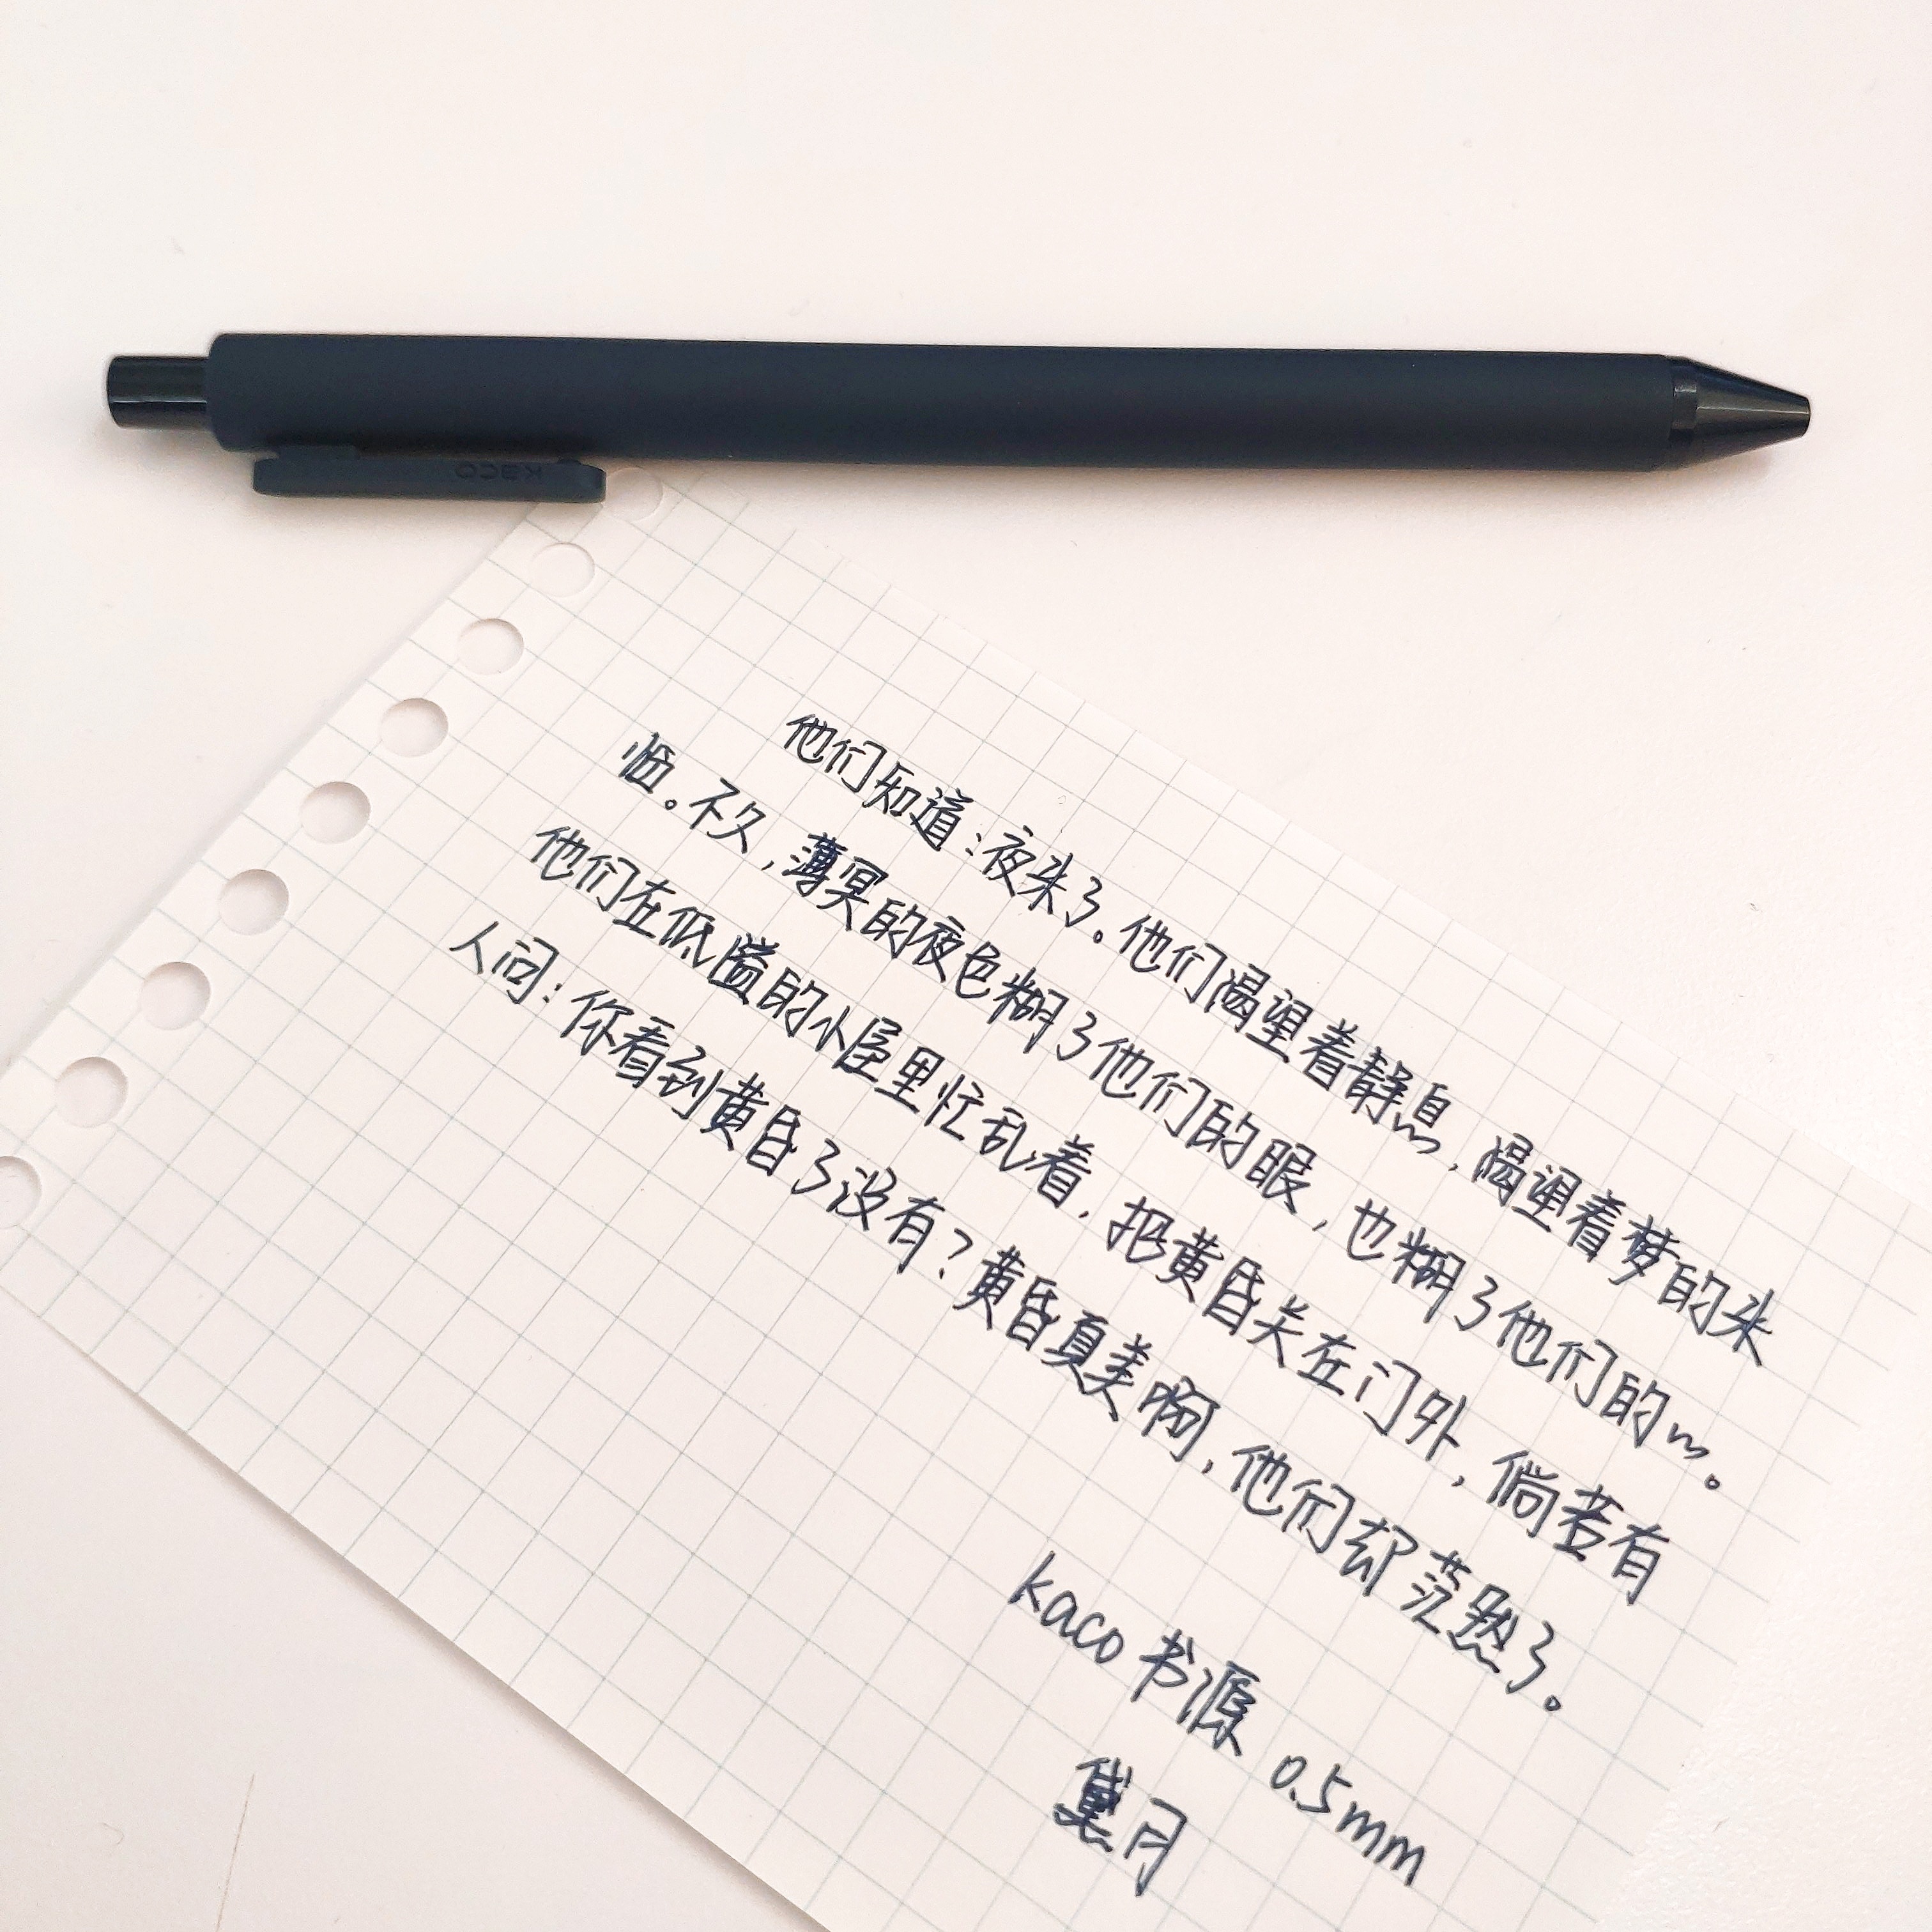 KACO
他们知道：夜来了。他们渴望着静息，渴望着梦的来
临。不久，薄冥的夜色糊了他们的眼，也糊了他们的心。
他们在低隘的小屋里忙乱着，把黄昏关在门外，倘若有
人问：你看到黄昏了没有？黄昏真美啊，他们却茫然了。
kaco 书源 0.5mm
黛月